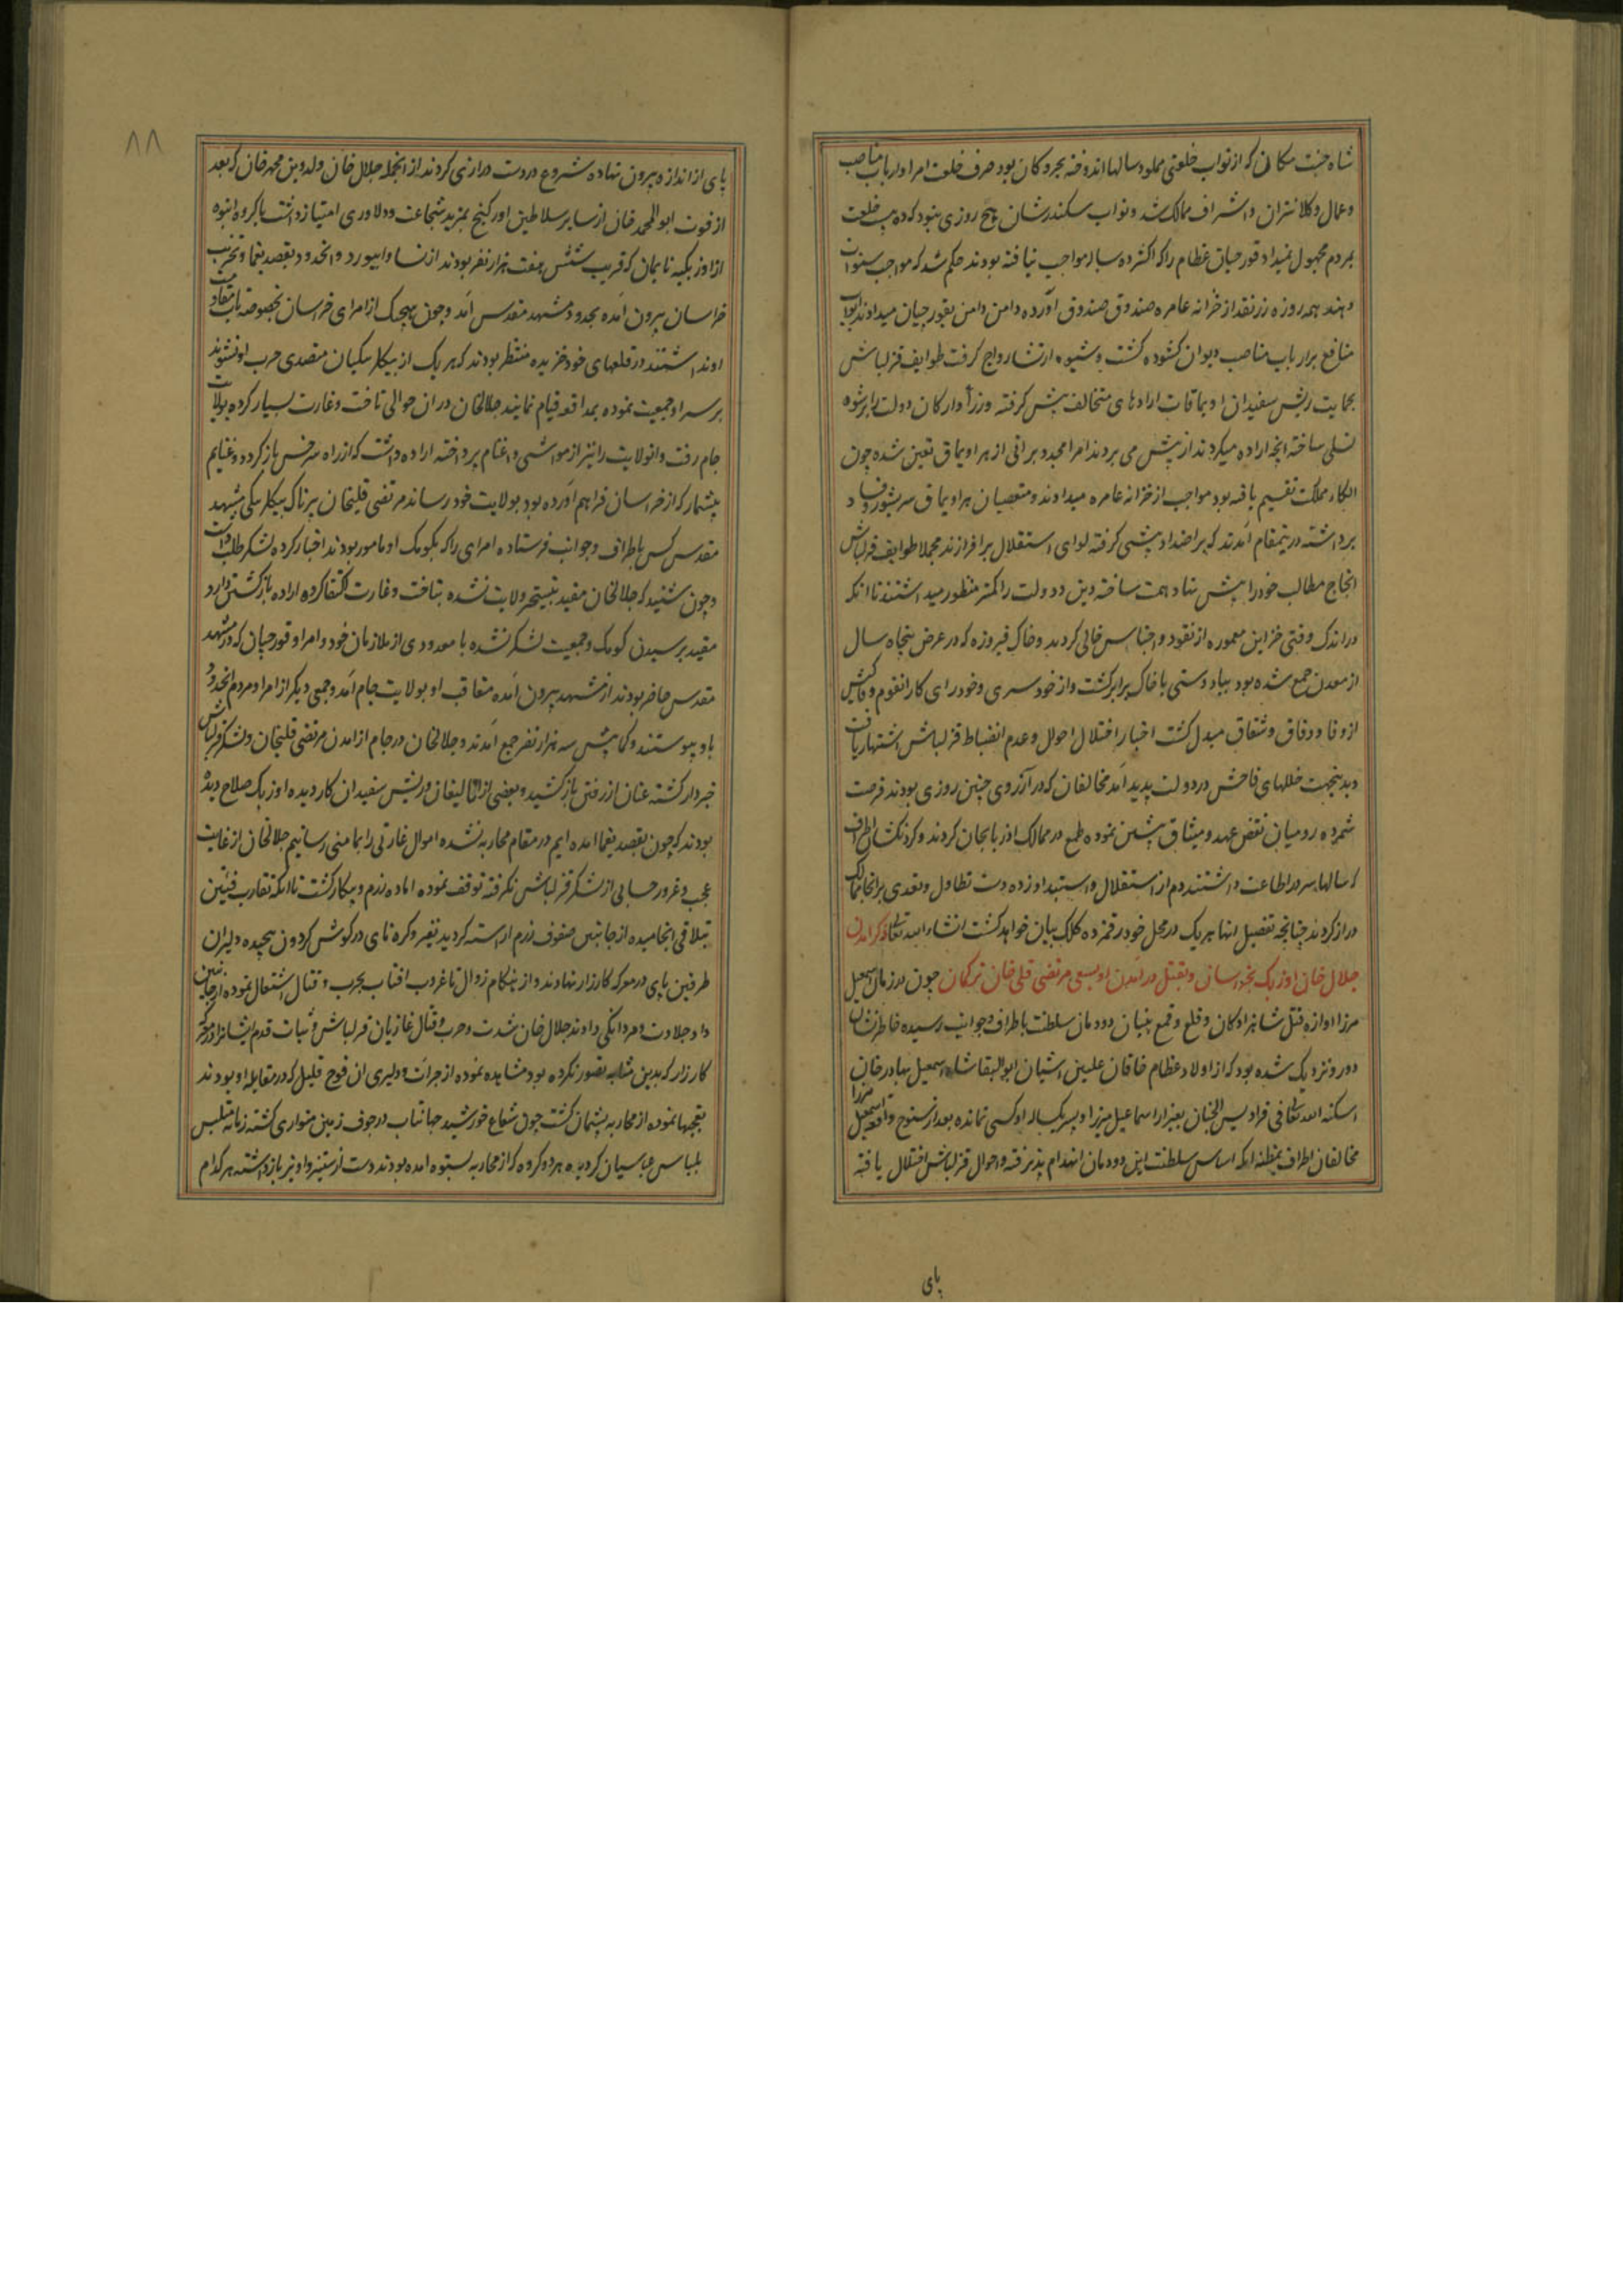 شاه جنت مکانی که از نواب خلعتی مملو و سالها اندوخته بحر و کان بود صرف خلعت امرا و ارباب مناصب
و عمال و کلانتران و اشراف ممالک شد و نواب سکندرشان هیچ روزی نبود که ده بیست خلعت
بمردم مجهول نمیداد قورچیان عظام را که اکثر ده ساله مواجب نیافته بودند حکم شد که مواجب سنوات
دهند همه روزه زر نقد از خزانه عامره صندوق صندوق آورده دامن دامن بقورچیان میدادند ابواب
منافع بر ارباب مناصب دیوان کشوده کشت و شیوه ارتشا رواج کرفت طوایف قزلباش
بحمایت ریش سفیدان اویماقات ارادهای متخالف پیش کرفته وزرا و ارکان دولت را برشوه
تسلی ساخته انچه اراده میکردند از پیش می بردند امرا مجددا براقی از هر اویماق تعین شده چون
الکاء مملکت تقسیم یافته بود مواجب از خزانه عامره میدادند و متعصبان هر اویماق سر بشور و فساد
برداشته در یمقام آمدند که بر اضداد پیشی کرفته لوای استقلال برافرازند مجملا طوایف قزلباش
انجاح مطالب خود را پیش نهاد همت ساخته دین و دولت را کمتر منظور میداشتند تا انکه
در اندک وقتی خزاین معموره از نقود و اجناس خالی کردید و خاک فیروزه که در عرض پنجاه سال
از معدن جمع شده بود بباد دستی با خاک برابر کشت و از خودسری و خودرای کار انقوم و فاکیش
از وفا و وفاق و شقاق مبدل کشت اخبار اختلال احوال و عدم انضباط قزلباش اشتهار یافت
و بدینجهت خللهای فاحش در دولت پدید آمد مخالفان که در آرزوی چنین روزی بودند فرصت
شمرده رومیان نقض عهد و میثاق پیشین نموده طمع در ممالک اذربایجان کردند و کردنکشان اطراف
که سالها سر در اطاعت داشتند دم از استقلال و استبداد زده دست تطاول و تعدی بر انحا ممالک
دراز کردند چنانچه تفصیل انها هر یک در محل خود رقمزده کلک بیان خواهد کشت انشاء الله تعالی ذکر امدن
جلال خان اوزبک بخراسان و بقتل در آمدن او بسعی مرتضی قلی خان ترکمان چون در زمان اسمعیل
مرزا اوازه قتل شاهزادکان و قلع و قمع بنیان دودمان سلطنت باطراف و جوانب رسیده خاطرنشان
دور و نزدیک شده بود که از اولاد عظام خاقان علیین اشیان ابوالبقا شاه اسمعیل بهادر خان
اسکنه الله تعالی فی فرادیس الجنان بغیر از اسماعیل میرزا و پسر یکساله او کسی نمانده بعد از سنوح واقعه اسمعیل مرزا
مخالفان اطراف بمظنه انکه اساس سلطنت این دودمان انهدام پذیرفته و احوال قزلباش اختلال یافته
پای
۸۸
پای از اندازه بیرون نهاده شروع در دست درازی کردند از انجمله جلال خان ولد دین محمد خان که بعد
از فوت ابوالمحمد خان از سایر سلاطین اورکنج بمزید شجاعت و دلاوری امتیاز داشت با کروه انبوه
از اوزبکیه نایمان که قریب شش هفت هزار نفر بودند از نسا و ابیورد و انحدود بقصد یغما و تخریب
خراسان بیرون آمده بحدود مشهد مقدس آمد و چون هیچیک از امرای خراسان بخصوصه تاب مقاومت
او نداشتند در قلعهای خود خزیده منتظر بودند که هر یک از بیکلربیکیان متصدی حرب او نشوند
بر سر او جمعیت نموده بمدافعه قیام نمایند جلالخان در ان حوالی تاخت و غارت بسیار کرده بولایت
جام رفت و انولایت را نیز از مواشی و اغنام پرداخته اراده داشت که از راه سرخس باز کردد و غنایم
بیشمار که از خراسان فراهم آورده بود بولایت خود رساند مرتضی قلیخان پرناک بیکلربیکی مشهد
مقدس کس باطراف و جوانب فرستاده امرای را که بکومک او مامور بودند اخبار کرده لشکر طلب داشت
و چون شنید که جلالخان مقید بتسخیر ولایت نشده بتاخت و غارت اکتفا کرده اراده بازکشتن دارد
مقید برسیدن کومک و جمعیت لشکر نشده با معدودی از ملازمان خود و امرا و قورچیان که در مشهد
مقدس حاضر بودند از مشهد بیرون آمده متعاقب او بولایت جام آمد و جمعی دیکر از امرا و مردم انحدود
باو پیوستند و کمابیش سه هزار نفر جمع آمدند و جلالخان در جام از امدن مرتضی قلیخان و لشکر قزلباش
خبردار کشته عنان از رفتن باز کشید و بعضی از اتالیقان و ریش سفیدان کار دیده اوزبک صلاح دیده
بودند که چون بقصد یغما امده ایم در مقام محاربه نشده اموال غارتی را بمامنی رسانیم جلالخان از غایت
عجب و غرور حسابی از لشکر قزلباش نکرفته توقف نموده اماده رزم و پیکار کشت تا انکه تقارب فئتین
بتلاقی انجامیده از جانبین صفوف رزم اراسته کردید نفیر و کره نای در کوش کردون پیچیده دلیران
طرفین پای در معرکه کارزار نهادند و از هنکام زوال تا غروب افتاب بحرب و قتال اشتعال نموده از جانبین
داد جلادت و مردانکی دادند جلال خان شدت و حرب و قتال غازیان قزلباش و ثبات قدم ایشانرا در معرکه
کارزار که بدین مثابه تصور نکرده بود مشاهده نموده از جرات و دلیری ان فوج قلیل که در مقابله او بودند
تعجبها نموده از محاربه پشیمان کشت چون شعاع خورشید جهانتاب در جوف زمین متواری کشته زمانه متلبس
بلباس عباسیان کردید هر دو کروه که از محاربه بستوه امده بودند دست از ستیز و اویز باز داشته هر کدام